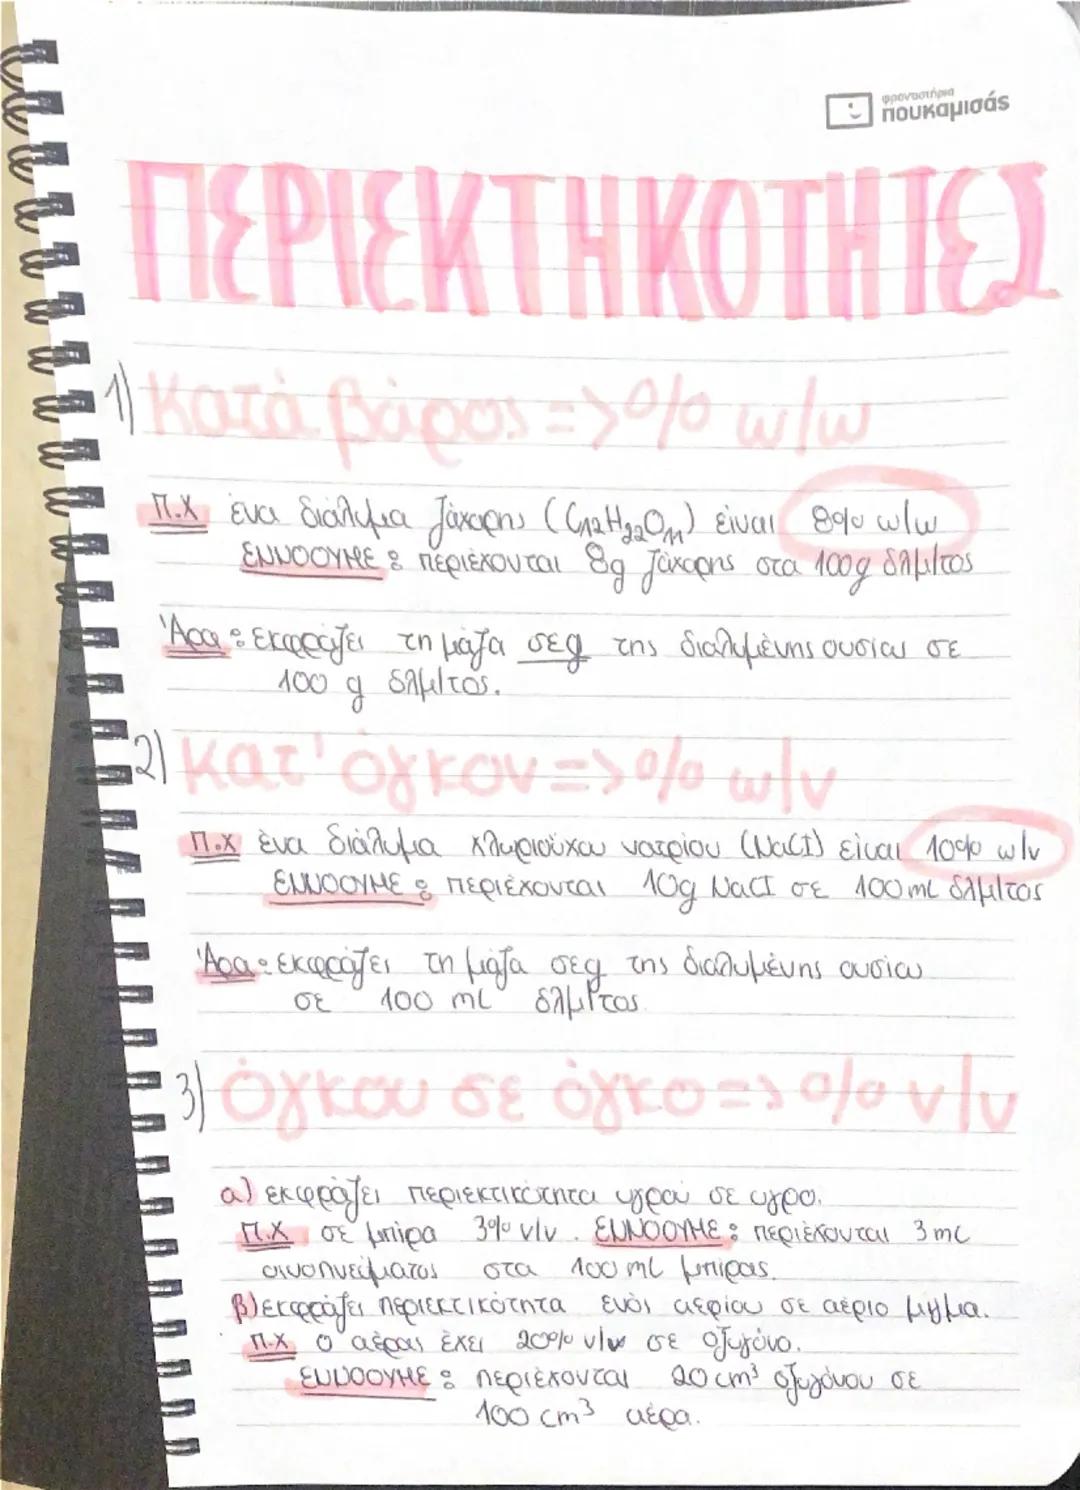 φροντιστήρια
πουκαμισάς
ΠΕΡΙΕΚΤΗΚΟΤΗΤΕΣ
1) Κατά βάρος => % w/w
Π.Χ ένα διάλυμα ζάχαρης (C12H22O11) είναι 8% w/w
ΕΝΝΟΟΥΜΕ : περιέχονται 8g ζάχαρης στα 100g δλμ/τος
Άρα : εκφράζει τη μάζα σε g της διαλυμένης ουσίας σε
100 g δλμ/τος.
2) Κατ' όγκον => % w/v
Π.Χ ένα διάλυμα χλωριούχου νατρίου (NaCl) είναι 10% w/v
ΕΝΝΟΟΥΜΕ : περιέχονται 10g NaCl σε 100 mL δλμ/τος
Άρα : εκφράζει τη μάζα σε g της διαλυμένης ουσίας
σε 100 mL δλμ/τος.
3) Όγκου σε όγκο => % v/v
α) εκφράζει περιεκτικότητα υγρού σε υγρο.
Π.Χ σε μπίρα 3% v/v. ΕΝΝΟΟΥΜΕ : περιέχονται 3 mL
οινοπνεύματος στα 100 mL μπίρας.
β) εκφράζει περιεκτικότητα ενός αερίου σε αέριο μίγμα.
Π.Χ Ο αέρας έχει 20% v/v σε οξυγόνο.
ΕΝΝΟΟΥΜΕ : περιέχονται 20 cm³ οξυγόνου σε
100 cm³ αέρα.